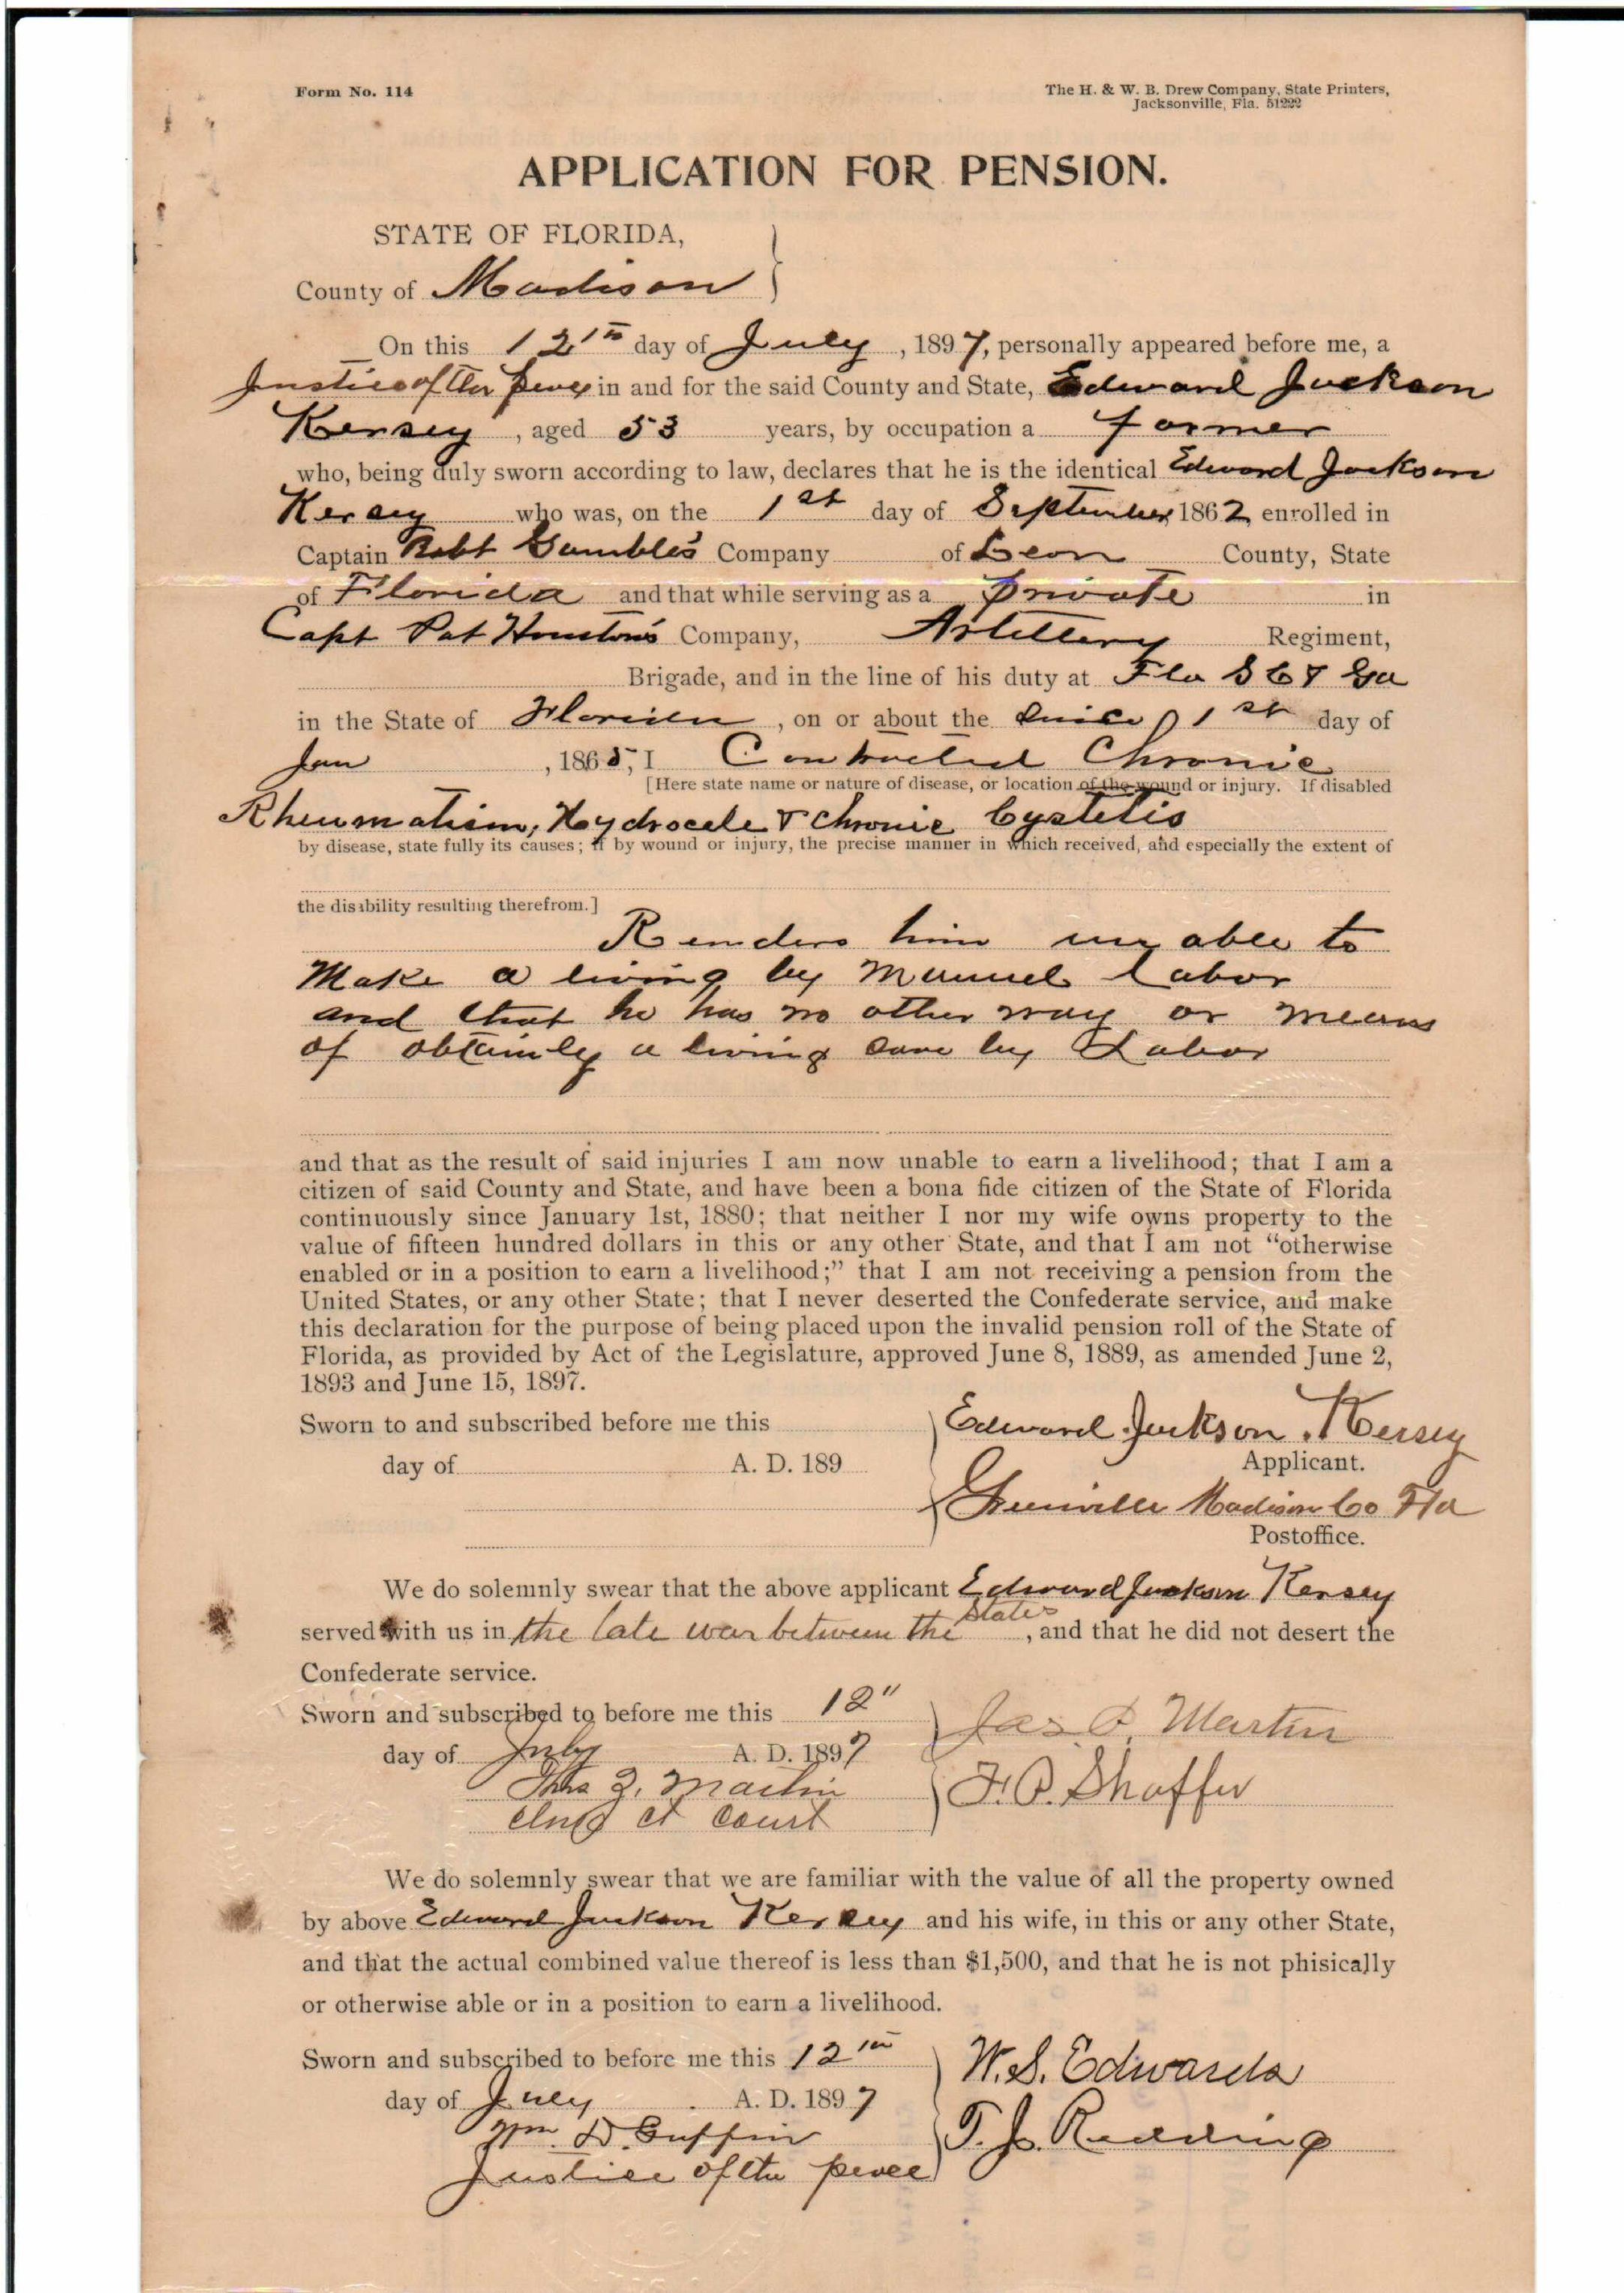 Form No. 114
The H. & W. B. Drew Company, State Printers,
Jacksonville, Fla. 51222
APPLICATION FOR PENSION.
STATE OF FLORIDA,
County of Madison
On this 12th day of July, 1897, personally appeared before me, a
Justice of the peace in and for the said County and State, Edward Jackson
Kersey, aged 53 years, by occupation a farmer
who, being duly sworn according to law, declares that he is the identical Edward Jackson
Kersey who was, on the 1st day of September 1862 enrolled in
Captain Robt Gamble's Company of Leon County, State
of Florida and that while serving as a private in
Capt Pat Houston's Company, Artillery Regiment,
Brigade, and in the line of his duty at Fla S C & Ga
in the State of Florida, on or about the since 1st day of
Jan, 1865, I Contracted Chronic
[Here state name or nature of disease, or location of the wound or injury. If disabled
Rheumatism, Hydrocele & chronic Cystetis
by disease, state fully its causes; if by wound or injury, the precise manner in which received, and especially the extent of
the disability resulting therefrom.]
Renders him un able to
Make a living by Manuel labor
and that he has no other way or means
of obtainly a living save by Labor
and that as the result of said injuries I am now unable to earn a livelihood; that I am a
citizen of said County and State, and have been a bona fide citizen of the State of Florida
continuously since January 1st, 1880; that neither I nor my wife owns property to the
value of fifteen hundred dollars in this or any other State, and that I am not "otherwise
enabled or in a position to earn a livelihood;" that I am not receiving a pension from the
United States, or any other State; that I never deserted the Confederate service, and make
this declaration for the purpose of being placed upon the invalid pension roll of the State of
Florida, as provided by Act of the Legislature, approved June 8, 1889, as amended June 2,
1893 and June 15, 1897.
Sworn to and subscribed before me this
day of A. D. 189
Edward Jackson Kersey
Applicant.
Greenville Madison Co Fla
Postoffice.
We do solemnly swear that the above applicant Edward Jackson Kersey
served with us in the late war between the States, and that he did not desert the
Confederate service.
Sworn and subscribed to before me this 12"
day of July A. D. 1897
Jas. P. Martin
Thos Z. Martin
F. P. Shaffer
Clerk Ct Court
We do solemnly swear that we are familiar with the value of all the property owned
by above Edward Jackson Kersey and his wife, in this or any other State,
and that the actual combined value thereof is less than $1,500, and that he is not phisically
or otherwise able or in a position to earn a livelihood.
Sworn and subscribed to before me this 12th
W. S. Edwards
day of July A. D. 1897
Wm. D. Griffin
T. J. Redding
Justice of the peace